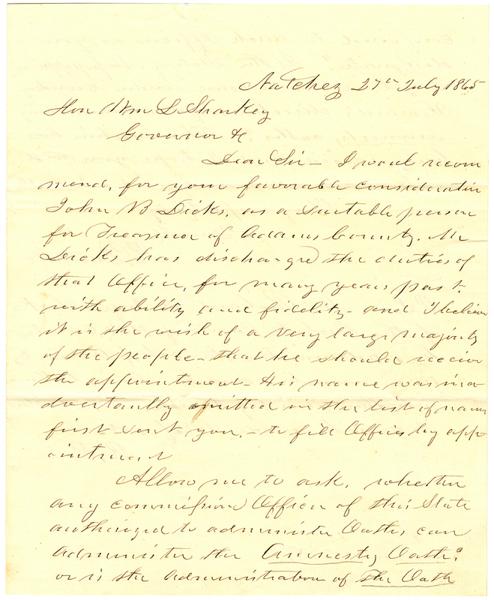 Natchez 27th July 1865
Hon Wm L Sharkey
Governor &c
Dear Sir - I would recom
mend, for your favorable consideration
John B Dicks, as a suitable person
for Treasurer of Adams County. Mr
Dicks has discharged the duties of
that Office, for many years past.
with ability and fidelity - and I believe
it is the wish of a very large majority
of the people - that he should receive
the appointment - His name was ina
dvertantly omitted in the list of names
first sent you, - to fill Offices by app
ointment
Allow me to ask, whether
any commission Officer of this State
authorized to administer Oaths, can
administer the Amnesty Oath?
or is the administration of the Oath